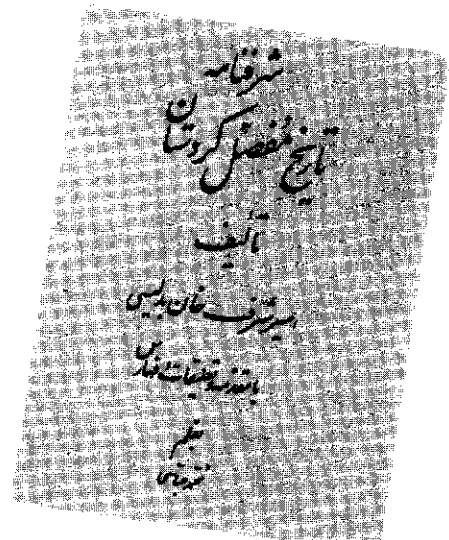 شرفنامه
تاریخ مفصل کردستان
تألیف
امیر شرف خان بدلیسی
با مقدمه و تعلیقات و فهارس
بقلم
محمد عباسی